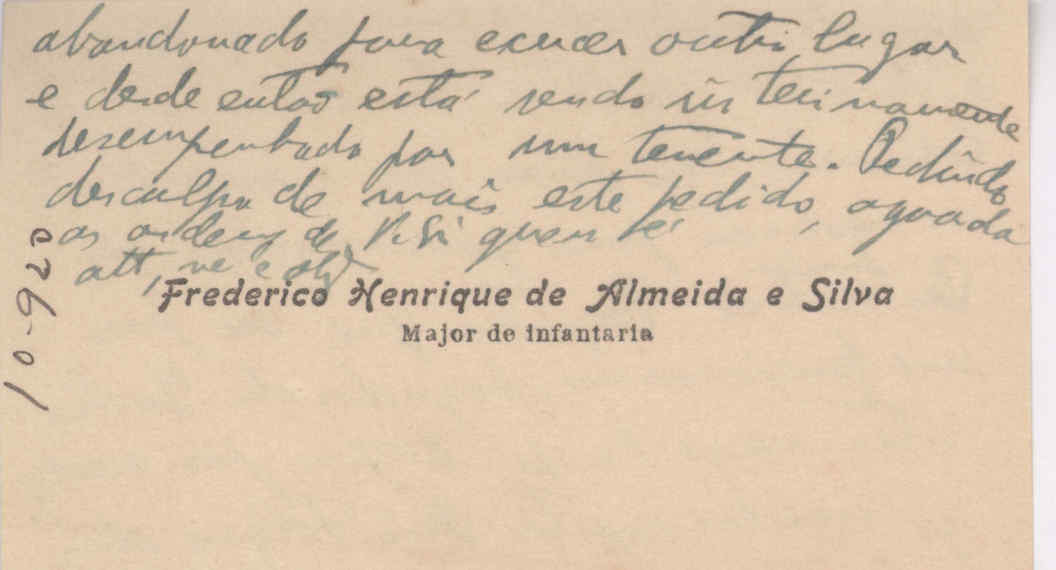 abandonado para exercer outro lugar
e desde então está sendo interinamente
desempenhado por um tenente. Pedindo
desculpa de mais este pedido, aguarda
as ordens de V. S. quem é
att, ve e obg
Frederico Henrique de Almeida e Silva
Major de infantaria
10-920